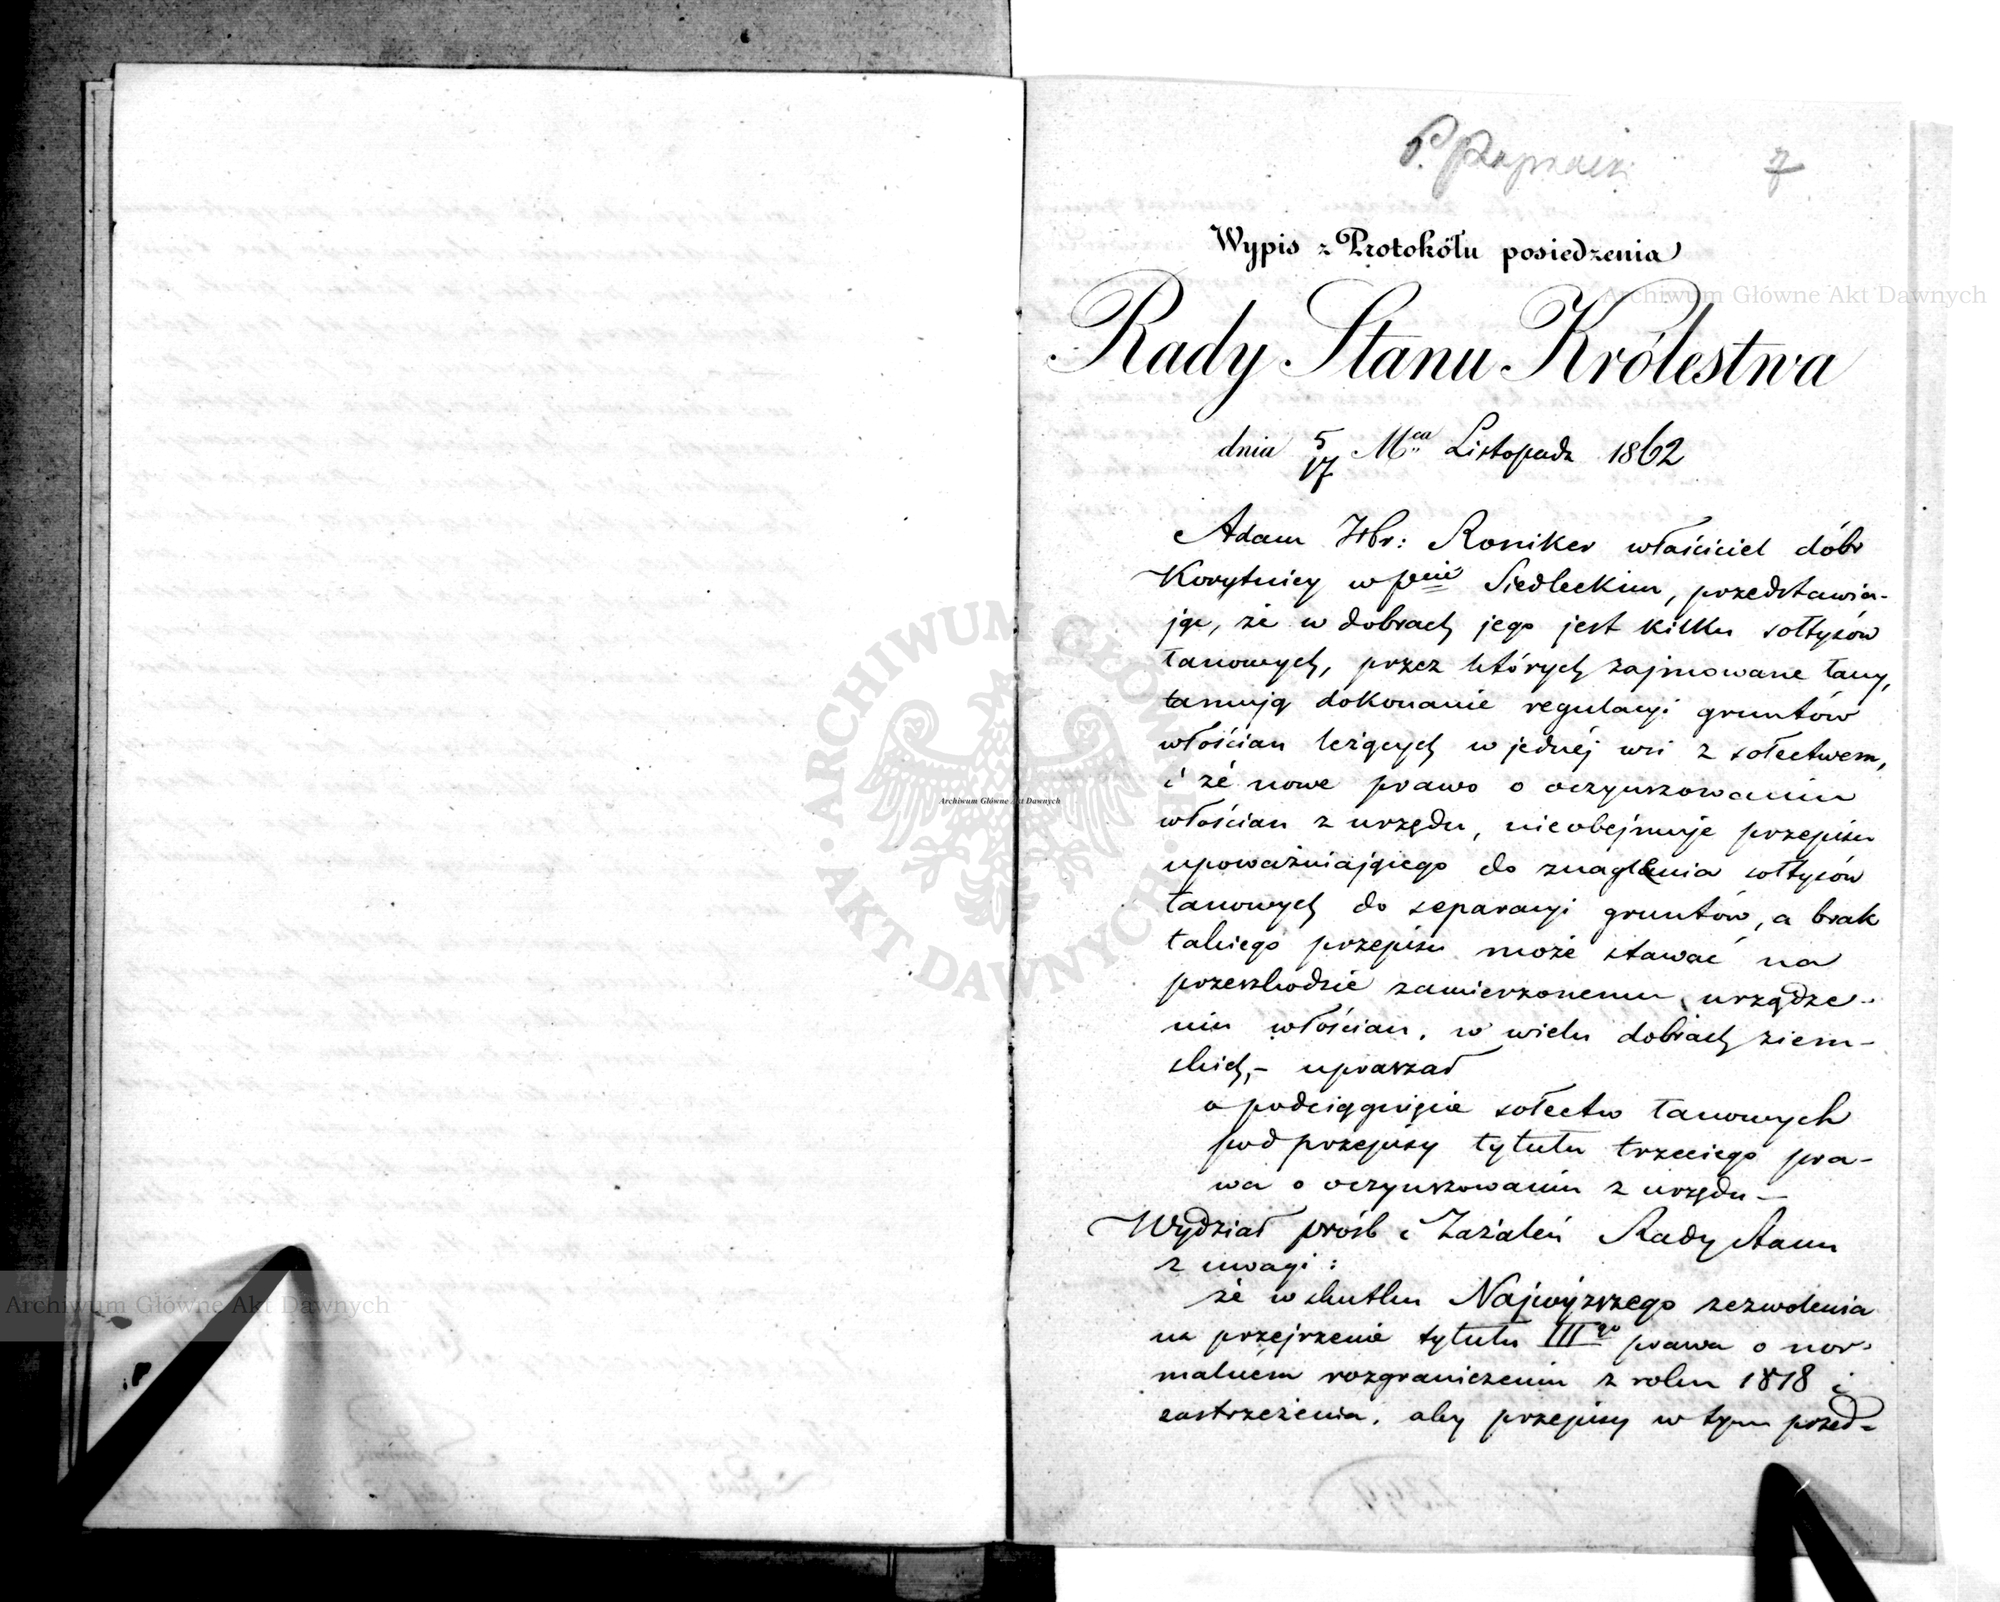 P. Paprocki
7
Wypis z Protokółu posiedzenia
Rady Stanu Królestwa
dnia 5/17 Mca Listopada 1862
Adam Hbr: Roniker właściciel dóbr
Korytnicy w pcie Siedleckim, przedstawia-
jąc, że w dobrach jego jest kilku sołtysów
łanowych, przez których zajmowane łany,
tamują dokonanie regulacyi gruntów
włościan leżących w jednéj wsi z sołectwem,
i że nowe prawo o oczynszowaniu
włościan z urzędu, nieobejmuje przepisu
upoważniającego do znaglenia sołtysów
łanowych do separacyi gruntów, a brak
takiego przepisu może stawać na
przeszkodzie zamierzonemu urządze-
niu włościan, w wielu dobrach ziem-
skich,- upraszał
o podciągnięcie sołectw łanowych
pod przepisy tytułu trzeciego pra-
wa o oczynszowaniu z urzędu —
Wydział próśb i Zażaleń Rady Stanu
z uwagi:
że w skutku Najwyższego zezwolenia
na przejrzenie tytułu IIIgo prawa o nor-
malném rozgraniczeniu z roku 1818 i
zastrzeżenia, aby przepisy w tym przed-
Archiwum Główne Akt Dawnych
Archiwum Główne Akt Dawnych
Archiwum Główne Akt Dawnych
ARCHIWUM GŁÓWNE
AKT DAWNYCH